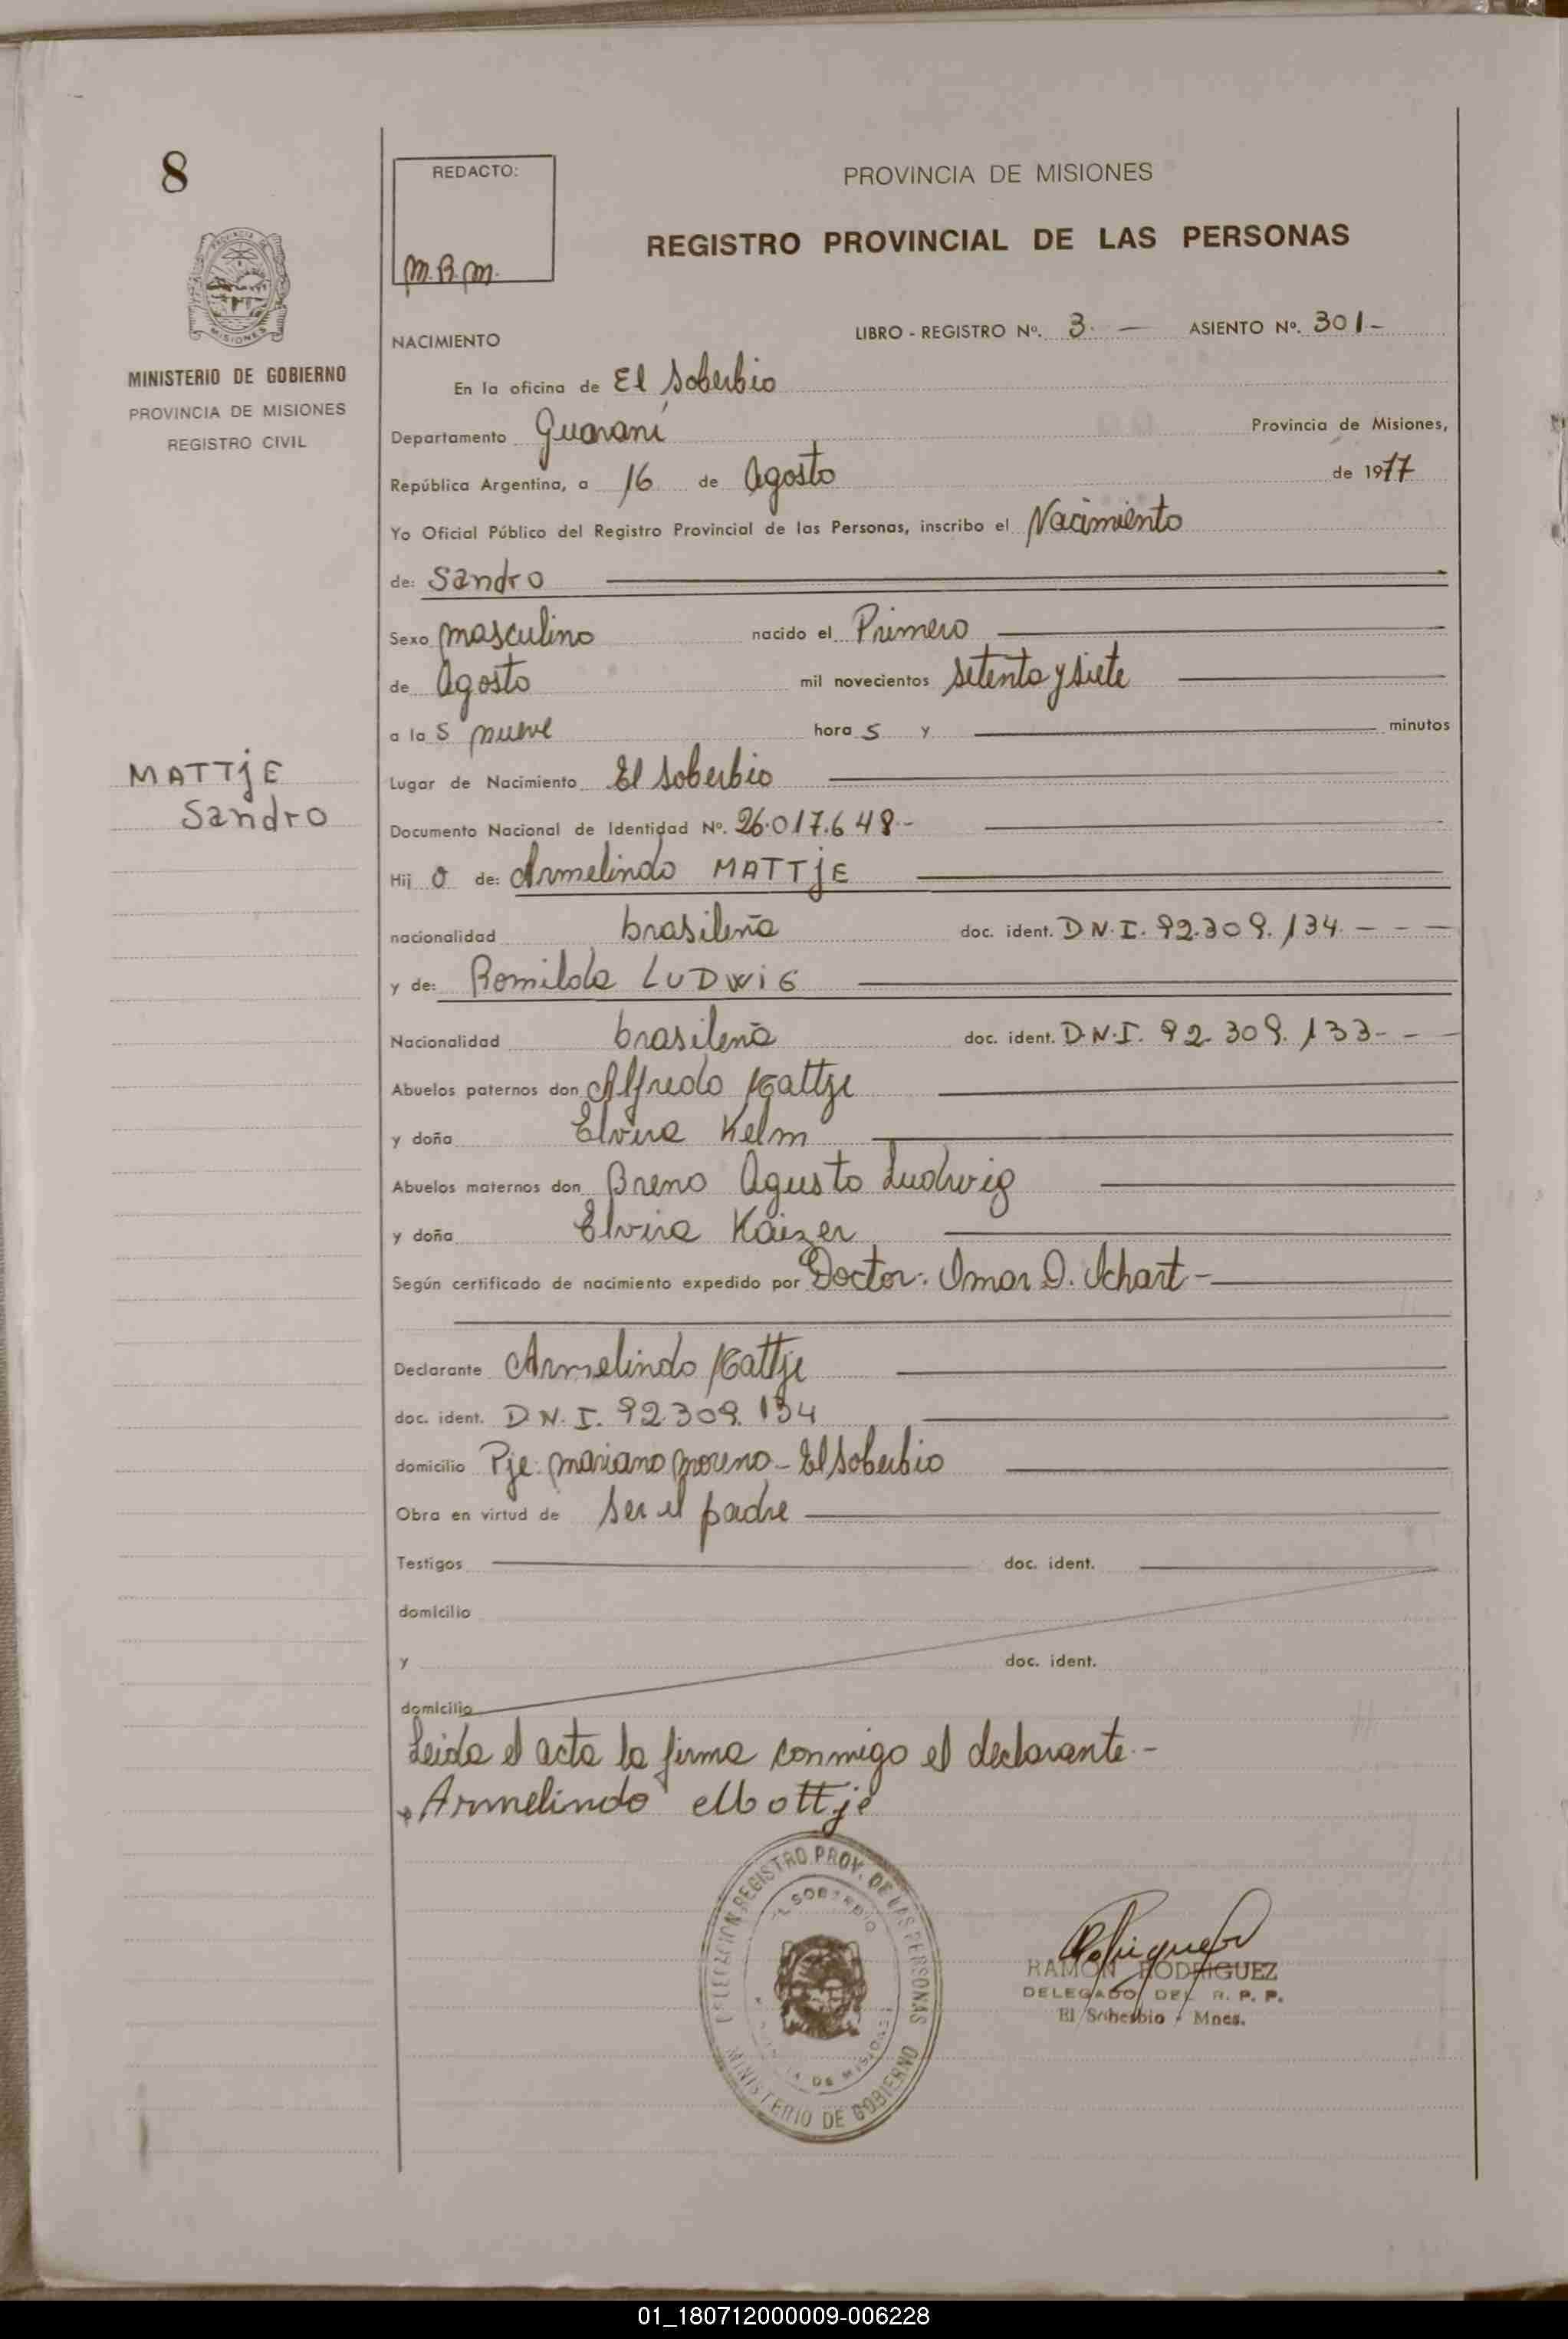 8
PROVINCIA DE
MISIONES
MINISTERIO DE GOBIERNO
PROVINCIA DE MISIONES
REGISTRO CIVIL
MATTjE
Sandro
REDACTO:
M.B.M.
PROVINCIA DE MISIONES
REGISTRO PROVINCIAL DE LAS PERSONAS
NACIMIENTO LIBRO - REGISTRO Nº. 3. — ASIENTO Nº. 301-
En la oficina de El Soberbio
Departamento Guaraní Provincia de Misiones,
República Argentina, a 16 de Agosto de 1977
Yo Oficial Público del Registro Provincial de las Personas, inscribo el Nacimiento
de: Sandro
Sexo masculino nacido el Primero
de Agosto mil novecientos setenta y siete
a la s nueve hora s y minutos
Lugar de Nacimiento El Soberbio
Documento Nacional de Identidad Nº. 26.017.648.-
Hij o de: Armelindo MATTjE
nacionalidad brasileña doc. ident. D N.I. 92.309.134. - - -
y de: Romilda LUDWiG
Nacionalidad brasileña doc. ident. D.N.I. 92.309.133- - -
Abuelos paternos don Alfredo Mattje
y doña Elvira Kelm
Abuelos maternos don Breno Agusto Ludwig
y doña Elvira Kaizer
Según certificado de nacimiento expedido por Doctor: Omar O. Ichart -
Declarante Armelindo Mattje
doc. ident. D N.I. 92.309.134
domicilio Pje. Mariano Moreno - El Soberbio
Obra en virtud de ser el padre
Testigos doc. ident.
domicilio
y doc. ident.
domicilio
Leida el acta la firma conmigo el declarante.-
Armelindo Mattje
DELEGACION REGISTRO PROV. DE LAS PERSONAS
EL SOBERBIO
PROVINCIA DE MISIONES
MINISTERIO DE GOBIERNO
RAMON RODRIGUEZ
DELEGADO DEL R. P. P.
El Soberbio - Mnes.
01_180712000009-006228